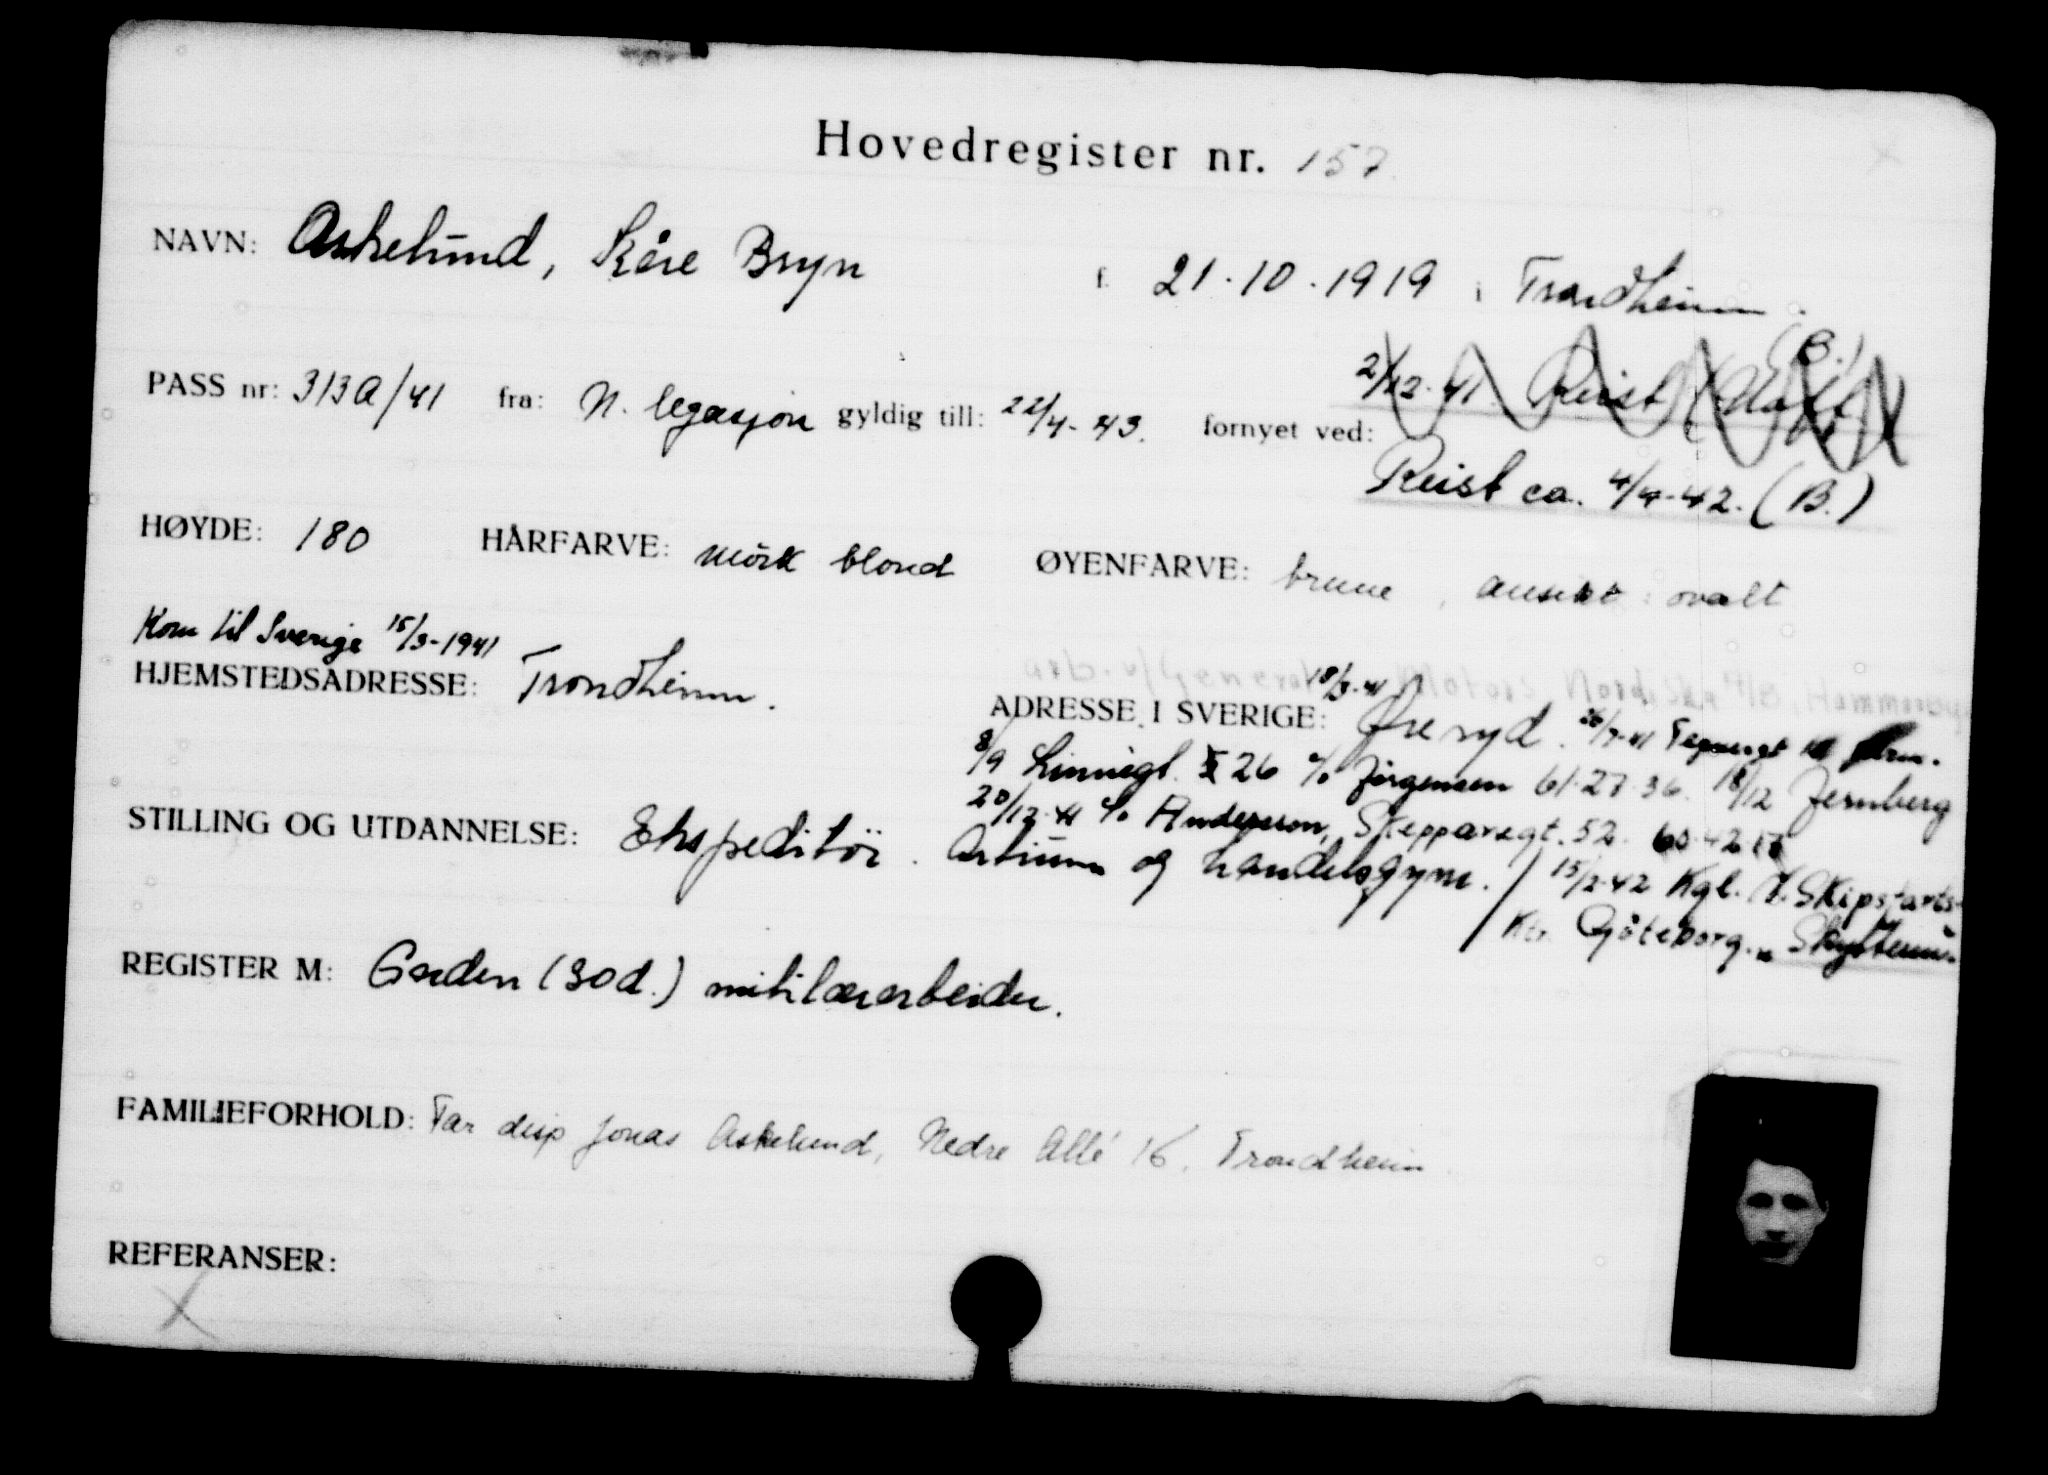 Hovedregister nr. 157
NAVN: Askelund, Kåre Bryn f. 21.10.1919 i Trondheim.
(B.)
2/12-41 Reist
PASS nr: 313A/41 fra: N. legasjon gyldig till: 22/4-43. fornyet ved:
Reist ca. 4/4-42. (B.)
HØYDE: 180 HÅRFARVE: mörk blond ØYENFARVE: brune, ansikt: ovalt
Kom til Sverige 15/3-1941
arb. v/ General Motors Nordiska A/B, Hammarby
HJEMSTEDSADRESSE: Trondheim.
ADRESSE I SVERIGE: 18/3-41 Øreryd. 26/7-41 Tegnergt
8/9 Linnégt. 26 c/o Jørgensen 61.27.36. 18/12 Jernberg
20/12-41 c/o Andersson, Skepparegt. 52. 60.42.17
STILLING OG UTDANNELSE: Ekspeditör. Artium og handelsgym.
15/2-42 Kgl. N. Skipsfarts-
Ktr. Göteborg.
REGISTER M: Garden (30d.) militærarbeider.
FAMILIEFORHOLD: Far disp Jonas Askelund, Nedre Allé 16, Trondheim
REFERANSER: